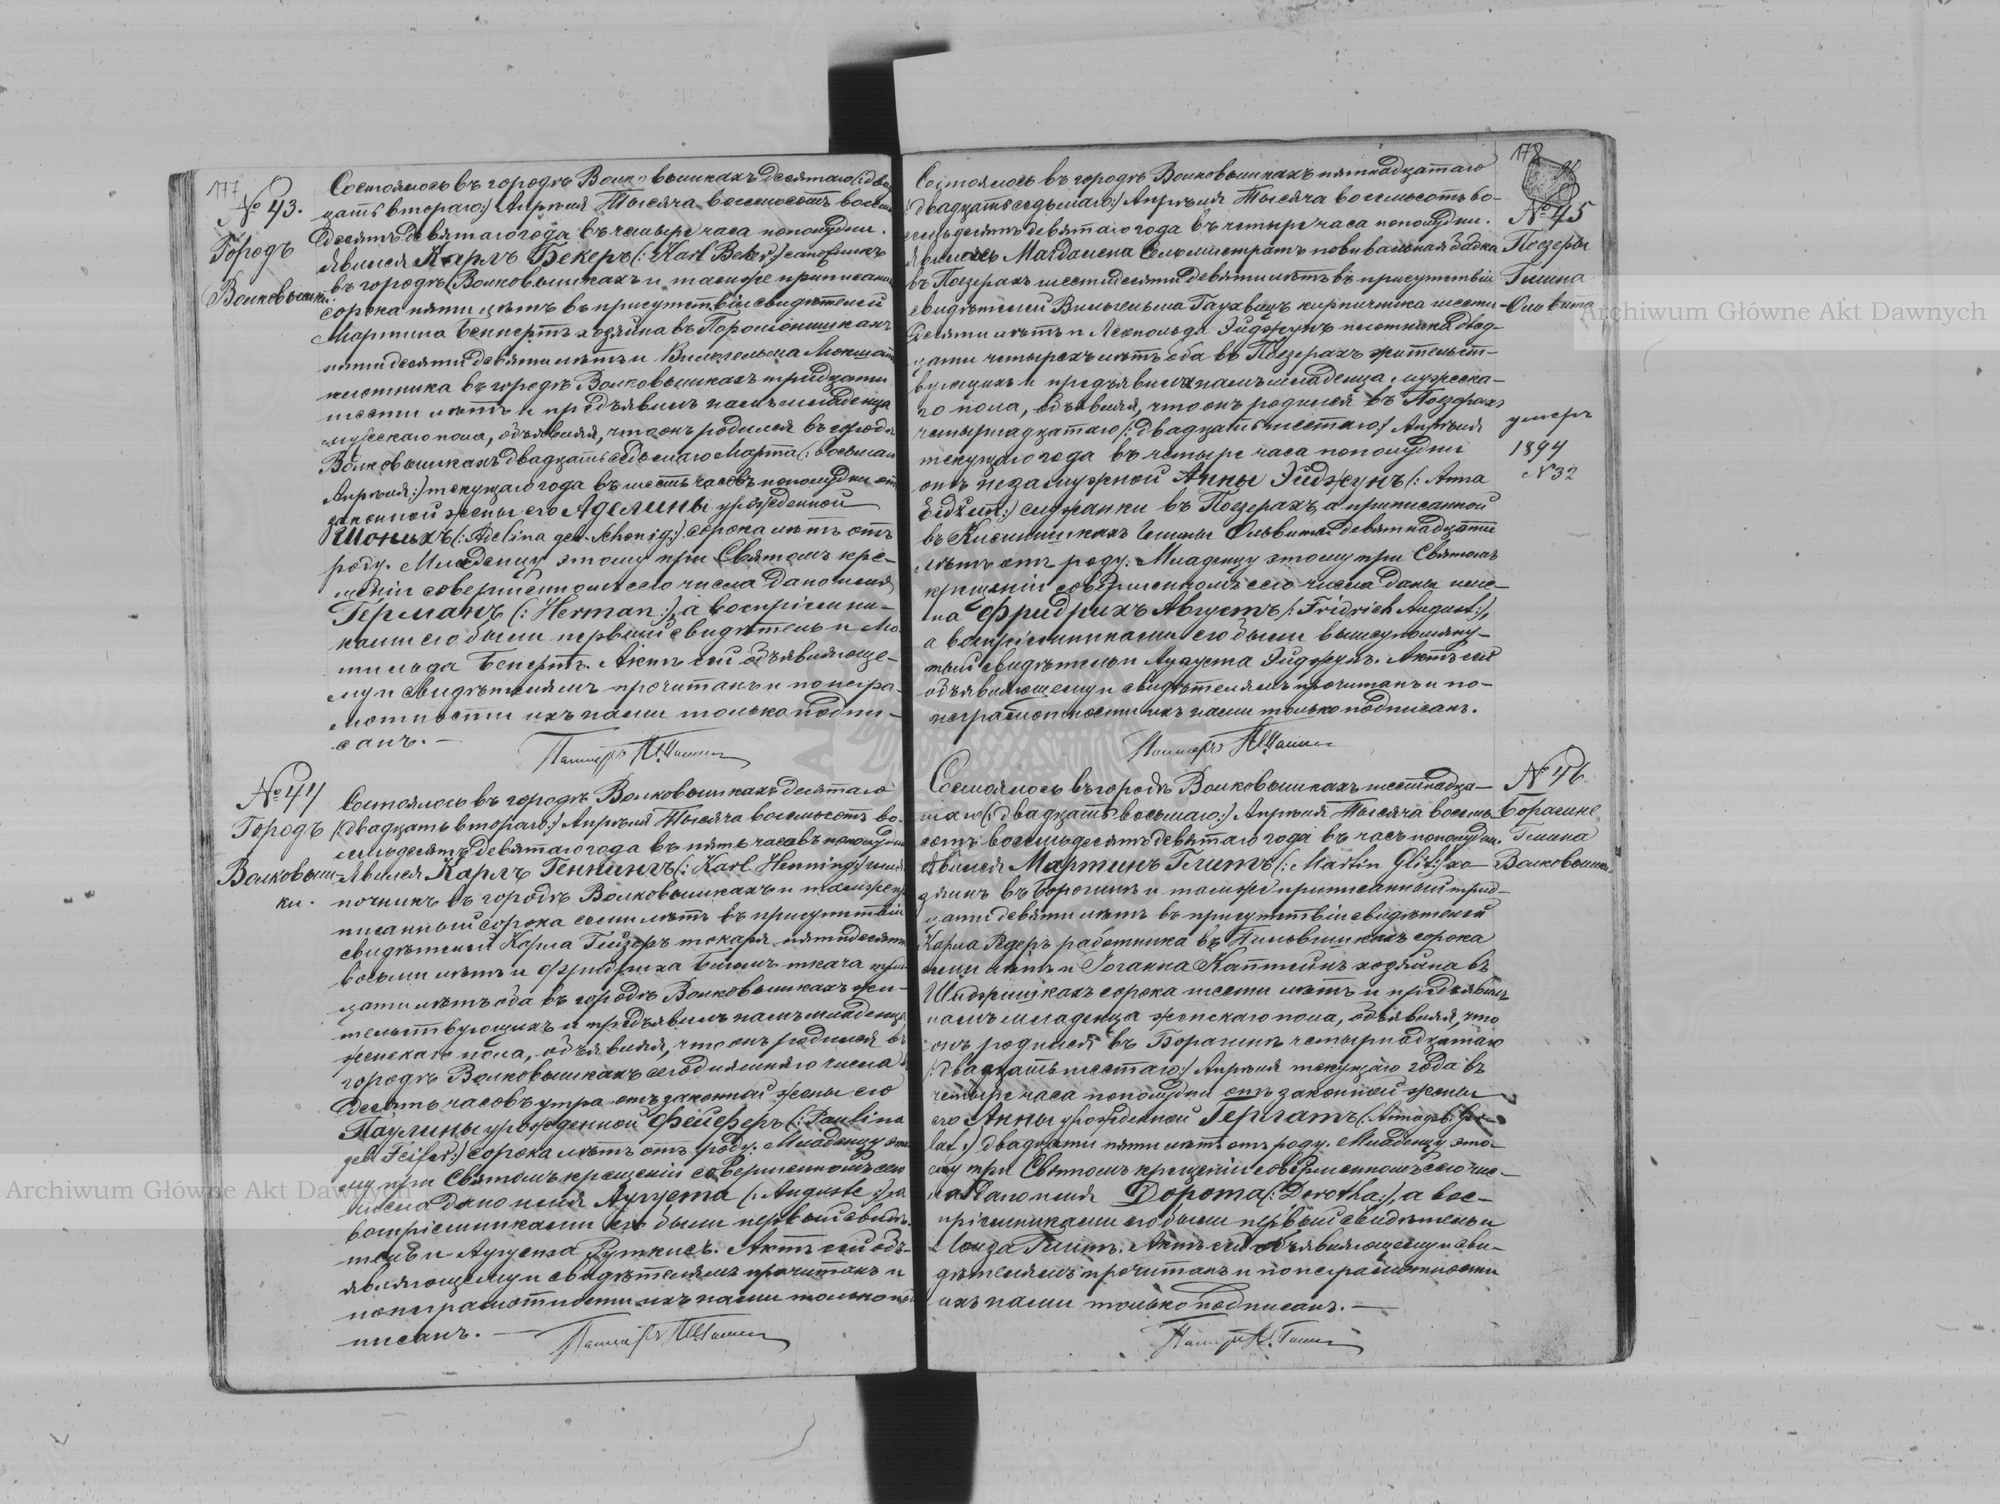 177
№ 43.
Городъ
Волковышки
Состоялось въ городѣ Волковышкахъ десятаго (: два
цать втораго :) Апрѣля Тысяча восемьсотъ восемь
десятъ девятаго года въ четыре часа пополудни.
Явился Карлъ Бекеръ (: Karl Beker :) сапожникъ
въ городѣ Волковышкахъ и тамже приписанный
сорока пяти лѣтъ въ присутствіи свидѣтелей
Мартина хозяина въ
пятидесяти девяти лѣтъ и Вильгельма
плотника въ городѣ Волковышкахъ тридцати
шести лѣтъ и предъявилъ намъ младенца
мужескаго пола, объявляя, что онъ родился въ городѣ
Волковышкахъ двадцать седьмаго Марта (: восьмаго
Апрѣля :) текущаго года въ шесть часовъ пополудни отъ
законной жены его Аделины урожденной
Шонихъ (: Adelina geb. Schonig :) сорока лѣтъ отъ
роду. Младенцу этому при Святомъ кре-
щеніи совершенномъ сего числа дано имя
Германъ (: Herman :), а воспріемни-
ками его были первый свидѣтель и Ма
тильда Беккертъ. Актъ сей объявляюще-
му и свидѣтелямъ прочитанъ и по негра-
мотности ихъ нами только подпи-
санъ. —
Пасторъ
№ 44
Городъ
Волковыш-
ки.
Состоялось въ городѣ Волковышкахъ десятаго
(: двадцать втораго :) Апрѣля Тысяча восемьсотъ во-
семьдесятъ девятаго года въ пять часовъ пополудни
Явился Карлъ Геннингъ (: Karl Henning :)
въ городѣ Волковышкахъ и тамже при
писанный сорока семи лѣтъ въ присутствіи
свидѣтелей Карла Гейзеръ токаря пятидесяти
восьми лѣтъ и Фридриха ткача
цати лѣтъ оба въ городѣ Волковышкахъ жи-
тельствующихъ и предъявилъ намъ младенца
женскаго пола, объявляя, что онъ родился въ
городѣ Волковышкахъ сегодняшняго числа въ
десять часовъ утра отъ законной жены его
Паулины урожденной Фейферъ (: Paulina
geb. Feifer :) сорока лѣтъ отъ роду. Младенцу это
му при Святомъ крещеніи совершенномъ сего
числа дано имя Августа (: Auguste :), а
воспріемниками его были первый свидѣ-
тель и Августа Руткисъ. Актъ сей объ-
являющему и свидѣтелямъ прочитанъ и
по неграмотности ихъ нами только под
писанъ. —
Пасторъ
178
№ 45
Поезеры
Гмина
Ольвита
умеръ
1894
№ 32
Состоялось въ городѣ Волковышкахъ пятнадцатаго
(: двадцать седьмаго :) Апрѣля Тысяча восемьсотъ во-
семьдесятъ девятаго года въ четыре часа пополудни.
Явилась Магдалена повивальная бабка
въ Поезерахъ шестидесяти девяти лѣтъ въ присутствіи
свидѣтелей Вильгельма кирпичника шести-
десяти лѣтъ и Леопольда Эйджунъ плотника двад-
цати четырехъ лѣтъ оба въ Поезерахъ жительст-
вующихъ и предъявила намъ младенца мужеска-
го пола, объявляя, что онъ родился въ Поезерахъ
четырнадцатаго (: двадцать шестаго :) Апрѣля
текущаго года въ четыре часа пополудни
отъ незамужной Анны Эйджунъ (: Anna
:) служанки въ Поезерахъ а приписанной
въ гмины Ольвита девятнадцати
лѣтъ отъ роду. Младенцу этому при Святомъ
крещеніи совершенномъ сего числа даны име-
на Фридрихъ Августъ (: Fridrich August :),
а воспріемниками его были вышеупомяну-
тый свидѣтель и Августа Эйджунъ. Актъ сей
объявляющему и свидѣтелямъ прочитанъ и по-
неграмотности ихъ нами только подписанъ.
Пасторъ
№ 46.
Гмина
Волковышки
Состоялось въ городѣ Волковышкахъ шестнадца-
таго (: двадцать восьмаго :) Апрѣля Тысяча восемь-
сотъ восемьдесятъ девятаго года въ часъ пополудни.
Явился Мартинъ Глитъ (: Martin Glit :) хо-
зяинъ въ и тамже приписанный трид-
цати девяти лѣтъ въ присутствіи свидѣтелей
Карла Редеръ работника въ сорока
семи лѣтъ и Іоганна хозяина въ
сорока шести лѣтъ и предъявилъ
намъ младенца женскаго пола, объявляя, что
онъ родился въ четырнадцатаго
(: двадцать шестаго :) Апрѣля текущаго года въ
четыре часа пополудни отъ законной жены
его Анны урожденной Герлатъ (: Anna geb. Ger-
lat :) двадцати пяти лѣтъ отъ роду. Младенцу это-
му при Святомъ крещеніи совершенномъ сего чис-
ла дано имя Дорота (: Dorotha :), а вос-
пріемниками его были первый свидѣтель и
Луиза Глитъ. Актъ сей объявляющему и сви-
дѣтелямъ прочитанъ и по неграмотности
ихъ нами только подписанъ. —
Пасторъ
Archiwum Główne Akt Dawnych
Archiwum Główne Akt Dawnych